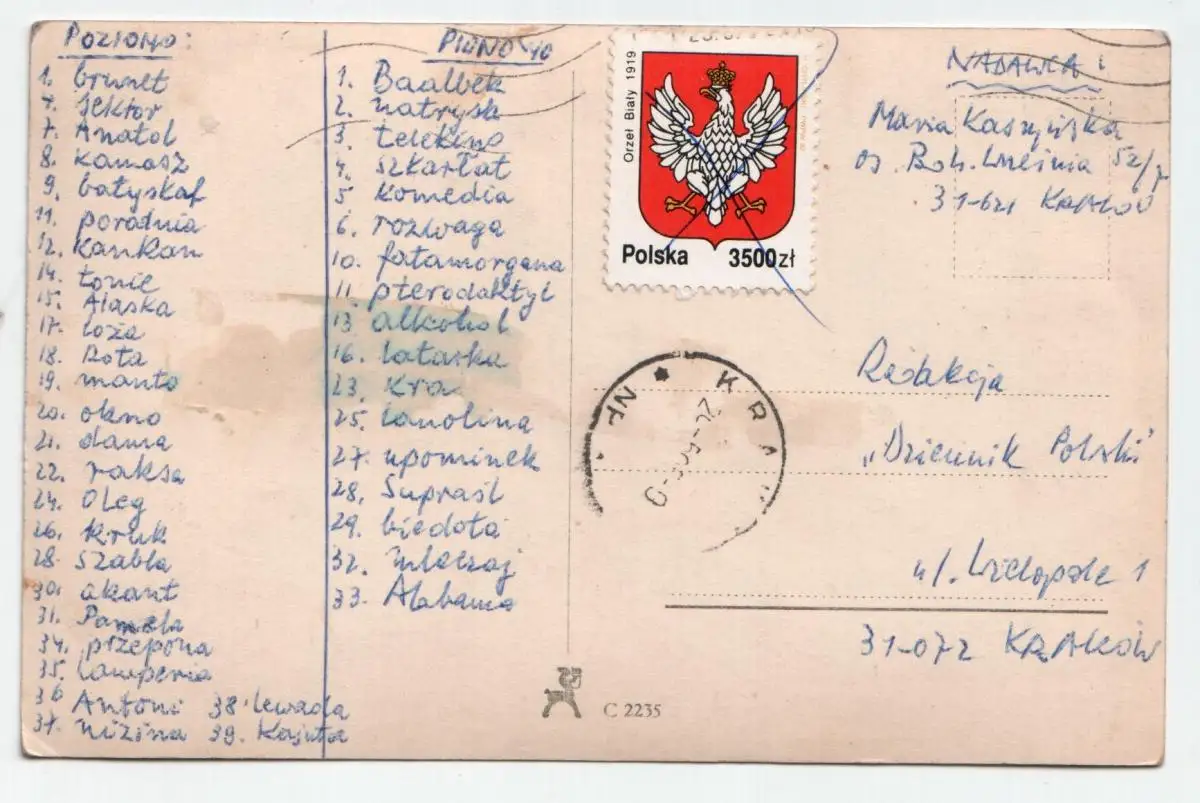 POZIOMO:
1. brunet
4. sektor
7. Anatol
8. kamasz
9. batyskaf
11. poradnia
12. kankan
14. tonie
15. Alaska
17. loża
18. Rota
19. manto
20. okno
21. dama
22. raksa
24. Oleg
26. kruk
28. szabla
30. akant
31. Pamela
34. przepona
35. lamperia
36 Antoni 38. Lewada
37. nizina 39. Kajuta
PIONOWO
1. Baalbek
2. natrysk
3. telekino
4. szkarłat
5 komedia
6. rozwaga
10. fatamorgana
11. pterodaktyl
13. alkohol
16. latarka
23. kra
25. lanolina
27. upominek
28. Supraśl
29. biedota
32.
33. Alabama
Orzeł Biały 1919
Polska 3500zł
NADAWCA:
Maria
os. Boh. Września 52/7
31-621 KRAKÓW
Redakcja
„Dziennik Polski"
ul. Wielopole 1
31-072 KRAKÓW
C 2235